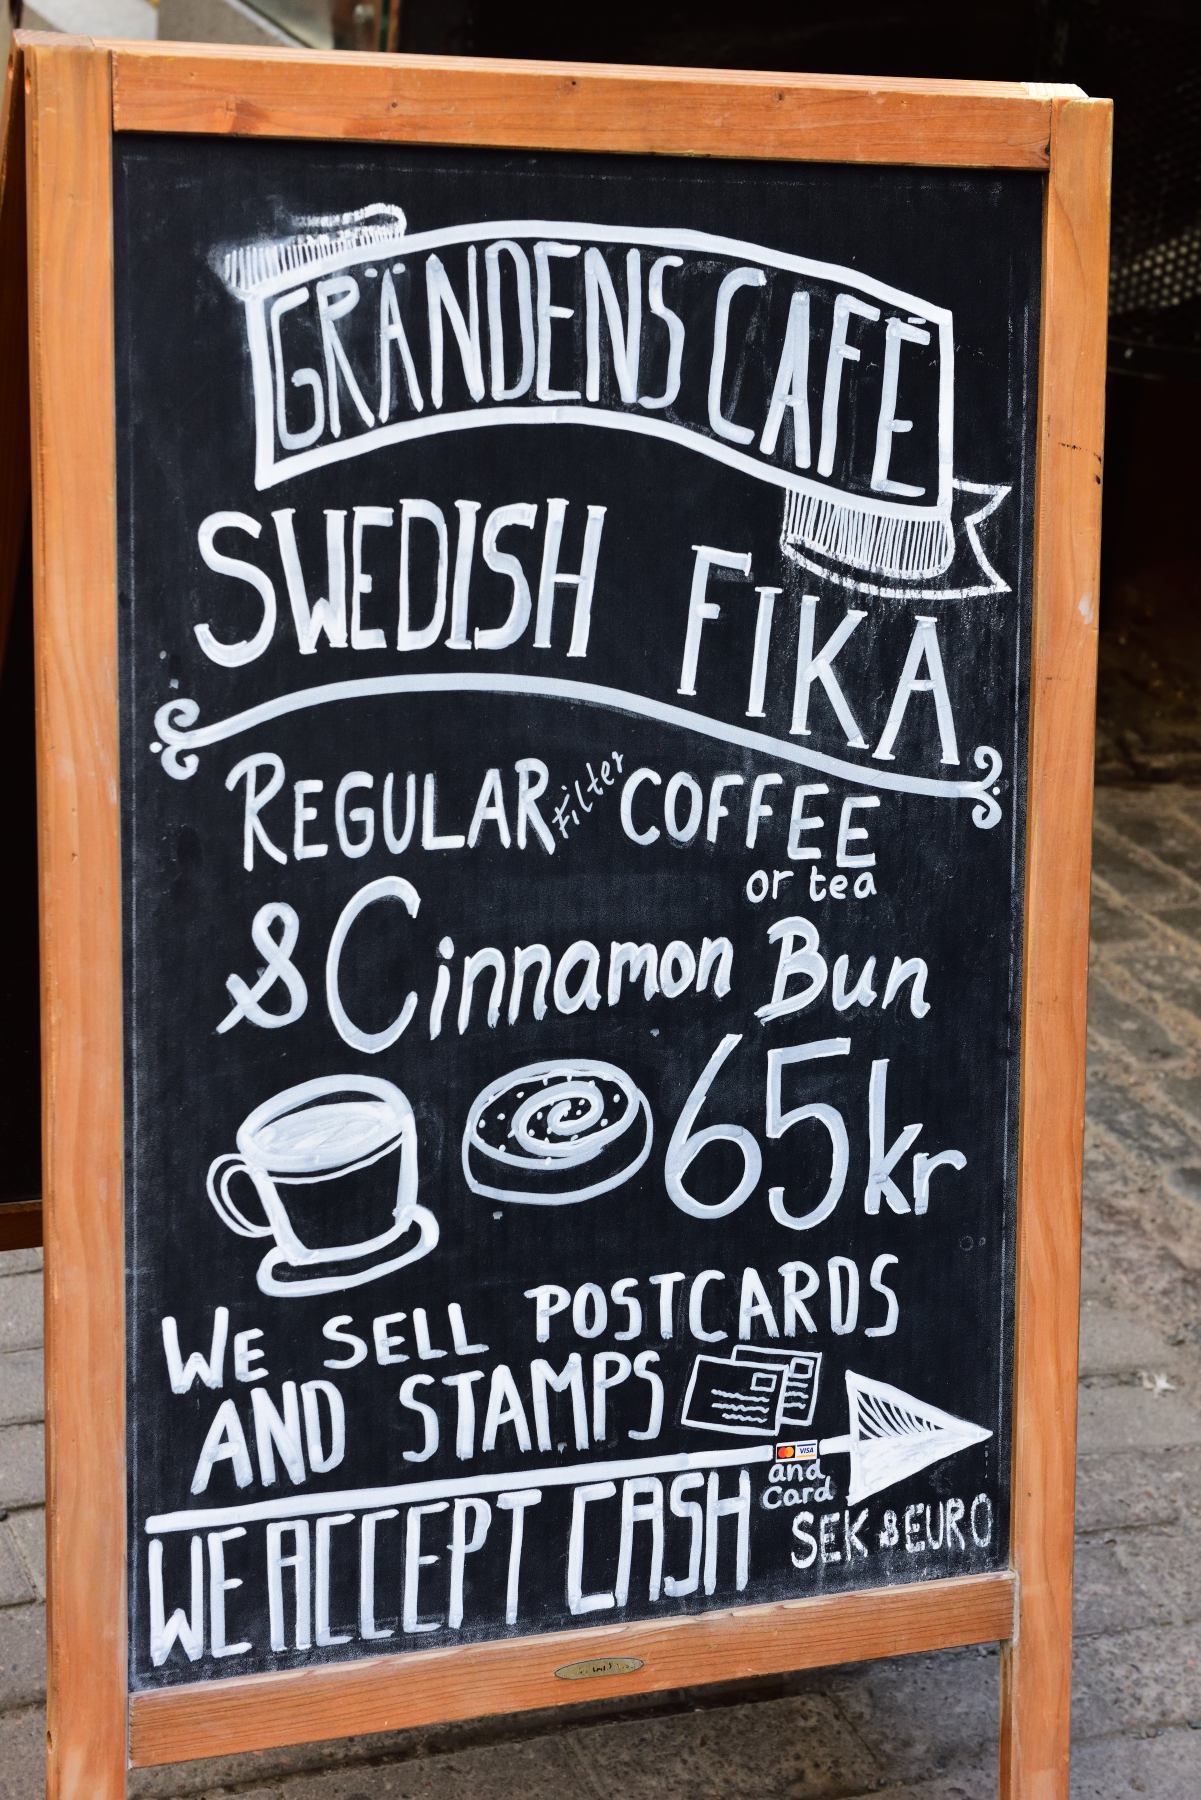 GRÄNDENS CAFÉ
SWEDISH FIKA
REGULAR Filter COFFEE
or tea
& Cinnamon Bun
65kr
WE SELL POSTCARDS
AND STAMPS
VISA
and
Card
WE ACCEPT CASH
SEK & EURO